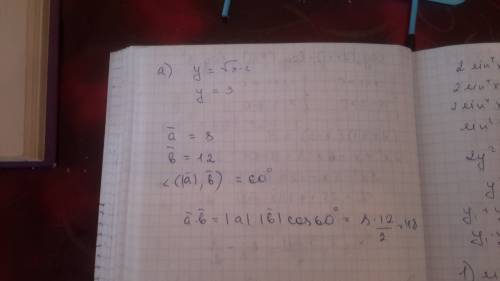 а) y = √x-2
y = 3
ā = 8
b̄ = 12
∠(|ā|, b̄) = 60°
ā·b̄ = |a|·|b̄| cos 60° = 8·12/2 = 48
2 sin² x
2 sin² x
2 sin² x
sin²
2y²
y
y₁ =
y₁
1)